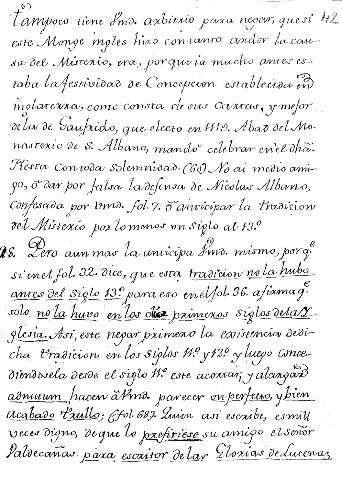 tampoco tiene Vmd. arbitrio para negar, que si 42
este Monge ingles hizo con tanto ardor la cau-
sa del Misterio, era, porque ia mucho antes es-
taba la festividad de Concepcion establecida en
inglaterra, como consta de sus Cartas, y mejor
de la de Gaufrido, que electo en 1119. Abad del Mo-
nasterio de S. Albano, mandó celebrar en el dha.
Fiesta con toda Solemnidad. (60) No ai medio ami-
go, o dar por falsa la defensa de Nicolas Albano,
confesada por Vmd. fol. 7. o anticipar la tradicion
del Misterio por lo menos un siglo al 13.º
28. Pero aun mas la anticipa Vmd. mismo, por q.e
si en el fol. 32. dice, que esta tradicion no la hubo
antes del Siglo 13.º para eso en el fol. 36. afirma q.e
solo no la huvo en los primeros siglos de la Y-
glesia. Asi, este negar primero la existencia de di-
cha tradicion en los siglos 11.º y 12.º y luego conce-
diendosela desde el siglo 11.º este acortar, y alargar
ad nutum, hacen a Vmd. parecer un perfecto, y bien
acabado Trullo; (fol. 687. Quien asi escribe, es mil
veces digno, de que lo prefiriese su amigo el señor
Valdecañas para escritor de las Glorias de Lucena,